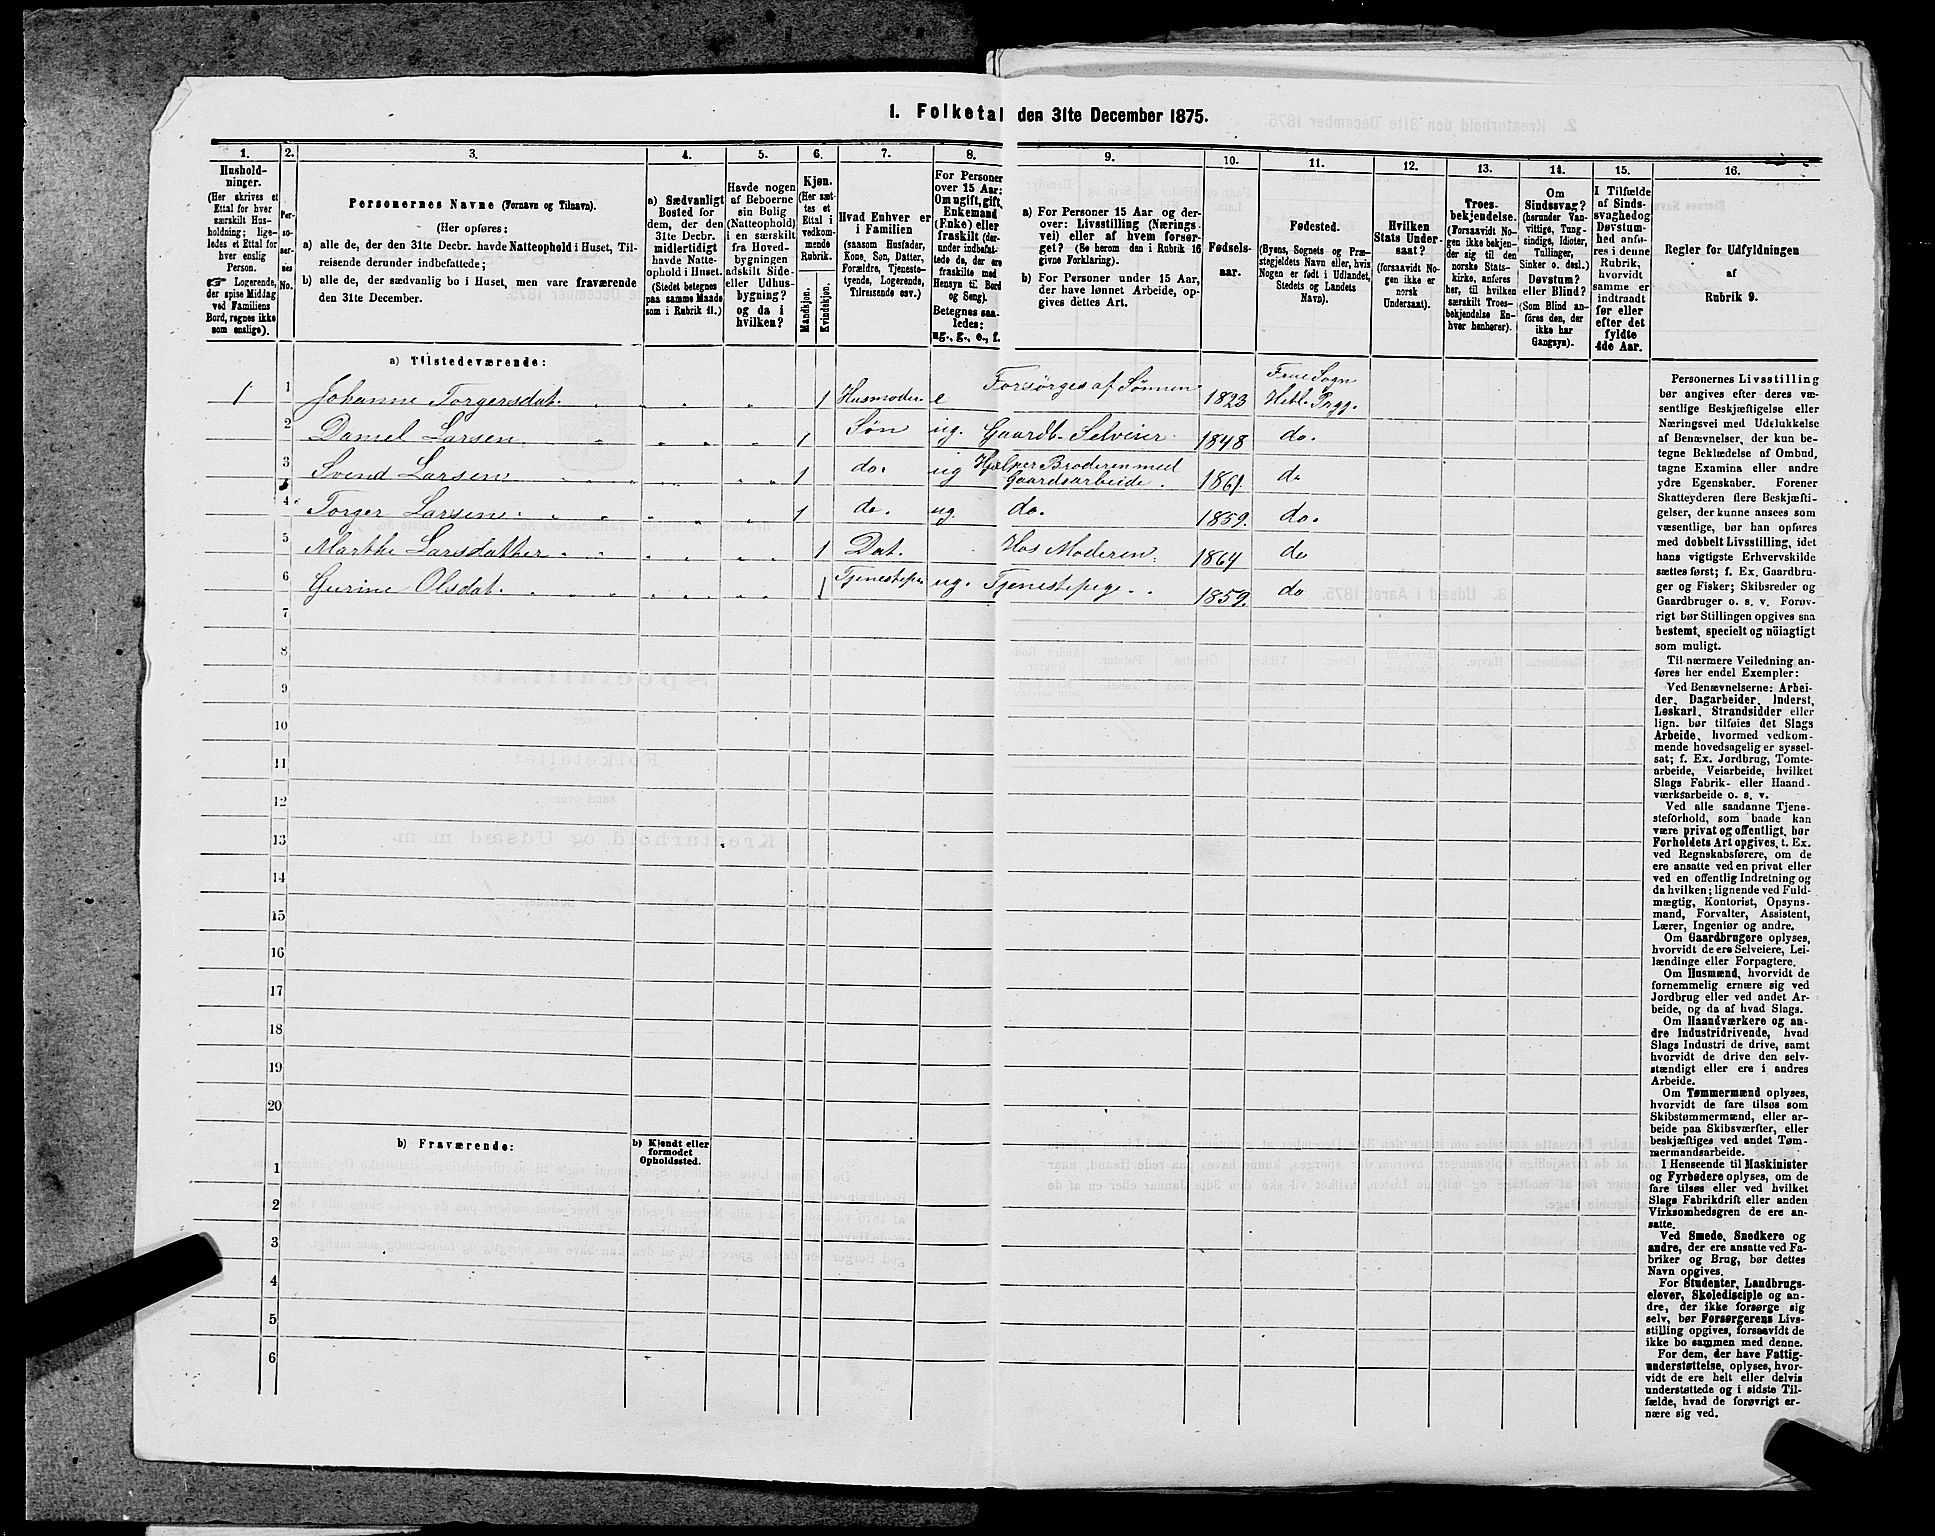 1. Folketal den 31te December 1875.
1. 2. 3. 4. 5. 6. 7. 8. 9. 10. 11. 12. 13. 14. 15. 16.
Hushold-
ninger.
(Her skrives et
Ettal for hver
særskilt Hus-
holdning; lige-
ledes et Ettal for
hver enslig
Person.
☞ Logerende,
der spise Middag
ved Familiens
Bord, regnes ikke
som enslige).
Per-
so-
ner-
nes
No.
Personernes Navne (Fornavn og Tilnavn).
(Her opføres:
a) alle de, der den 31te Decbr. havde Natteophold i Huset, Til-
reisende derunder indbefattede;
b) alle de, der sædvanlig bo i Huset, men vare fraværende
den 31te December.
a) Sædvanligt
Bosted for
dem, der den
31te Decbr.
midlertidigt
havde Natte-
ophold i Huset.
(Stedet betegnes
paa samme Maade
som i Rubrik 11.)
Havde nogen
af Beboerne
sin Bolig
(Natteophold)
i en særskilt
fra Hoved-
bygningen
adskilt Side-
eller Udhus-
bygning?
og da i
hvilken?
Kjøn.
(Her sæt-
tes et
Ettal i
vedkom-
mende
Rubrik.
Mandkjøn.
Kvindekjøn.
Hvad Enhver er
i Familien
(saasom Husfader,
Kone, Søn, Datter,
Forældre, Tjeneste-
tyende, Logerende,
Tilreisende osv.)
For Personer
over 15 Aar:
Om ugift, gift,
Enkemand
(Enke) eller
fraskilt (der-
under indbefat-
tede de, der ere
fraskilte med
Hensyn til Bord
og Seng).
Betegnes saa-
ledes:
ug., g., e., f.
a) For Personer 15 Aar og der-
over: Livsstilling (Nærings-
vei) eller af hvem forsør-
get? (Se herom den i Rubrik 16
givne Forklaring).
b) For Personer under 15 Aar,
der have lønnet Arbeide, op-
gives dettes Art.
Fødsels-
aar.
Fødested.
(Byens, Sognets og Præ-
stegjeldets Navn eller, hvis
Nogen er født i Udlandet,
Stedets og Landets
Navn).
Hvilken
Stats Under-
saat?
(forsaavidt No-
gen ikke er
norsk
Undersaat).
Troes-
bekjendelse.
(Forsaavidt No-
gen ikke bekjen-
der sig til den
norske Stats-
kirke, anføres
her, til hvilken
særskilt Troes-
bekjendelse En-
hver henhører).
Om
Sindssvag?
(herunder Van-
vittige, Tung-
sindige, Idioter,
Tullinger,
Sinker o. desl.)
Døvstum?
eller Blind?
(Som Blind an-
føres den, der
ikke har
Gangsyn).
I Tilfælde
af Sinds-
svaghed og
Døvstum-
hed anfø-
res i denne
Rubrik,
hvorvidt
samme er
indtraadt
før eller
efter det
fyldte
4de Aar.
Regler for Udfyldningen
af
Rubrik 9.
a) Tilstedeværende:
1 1 Johanne Torgersdat. 1 Husmoder e Forsørges af Sønnen 1823 Frue Sogn
Hetl. Prgj.
2 Daniel Larsen 1 Søn ug. Gaardb. Selveier 1848 do.
3 Svend Larsen 1 do. ug Hjælper Broderen med
Gaardsarbeide. 1861. do
4 Torger Larsen 1 do. ug. do. 1859. do.
5 Marthe Larsdatter 1 Dat. Hos Moderen 1864 do
6 Gurine Olsdat. 1 Tjenestepi ug. Tjenestepige 1859. do
7
8
9
10
11
12
13
14
15
16
17
18
19
20
b) Fraværende:
b) Kjendt eller
formodet
Opholdssted.
1
2
3
4
5
6
Personernes Livsstilling
bør angives efter deres væ-
sentlige Beskjæftigelse eller
Næringsvei med Udelukkelse
af Benævnelser, der kun be-
tegne Beklædelse af Ombud,
tagne Examina eller andre
ydre Egenskaber. Forener
Skatteyderen flere Beskjæfti-
gelser, der kunne ansees som
væsentlige, bør han opføres
med dobbelt Livsstilling, idet
hans vigtigste Erhvervskilde
sættes først; f. Ex. Gaardbru-
ger og Fisker; Skibsreder og
Gaardbruger o. s. v. Forøv-
rigt bør Stillingen opgives saa
bestemt, specielt og nöiagtigt
som muligt.
Til nærmere Veiledning an-
føres her endel Exempler:
Ved Benævnelserne: Arbei-
der, Dagarbeider, Inderst,
Løskarl, Strandsidder eller
lign. bør tilføies det Slags
Arbeide, hvormed vedkom-
mende hovedsagelig er syssel-
sat; f. Ex. Jordbrug, Tomte-
arbeide, Veiarbeide, hvilket
Slags Fabrik- eller Haand-
værksarbeide o. s. v.
Ved alle saadanne Tjene-
steforhold, som baade kan
være privat og offentligt, bør
Forholdets Art opgives, t. Ex.
ved Regnskabsførere, om de
ere ansatte ved en privat eller
ved en offentlig Indretning og
da hvilken; lignende ved Fuld-
mægtig, Kontorist, Opsyns-
mand, Forvalter, Assistent,
Lærer, Ingeniør og andre.
Om Gaardbrugere oplyses,
hvorvidt de ere Selveiere, Lei-
lændinge eller Forpagtere.
Om Husmænd, hvorvidt de
fornemmelig ernære sig ved
Jordbrug eller ved andet Ar-
beide, og da af hvad Slags.
Om Haandværkere og an-
dre Industridrivende, hvad
Slags Industri de drive, samt
hvorvidt de drive den selv-
stændigt eller ere i andres
Arbeide.
Om Tømmermænd oplyses,
hvorvidt de fare tilsøs som
Skibstømmermænd, eller ar-
beide paa Skibsværfter, eller
beskjæftiges ved andet Tøm-
mermandsarbeide.
I Henseende til Maskinister
og Fyrbødere oplyses, om de
fare tilsøs eller ved hvilket
Slags Fabrikdrift eller anden
Virksomhedsgren de ere an-
satte.
Ved Smede, Snedkere og
andre, der ere ansatte ved Fa-
briker og Brug, bør dettes
Navn opgives.
For Studenter, Landbrugs-
elever, Skoledisciple og an-
dre, der ikke forsørge sig
selv, bør Forsørgerens Livs-
stilling opgives, forsaavidt de
ikke bo sammen med denne.
For dem, der have Fattig-
understøttelse, oplyses, hvor-
vidt de ere helt eller delvis
understøttede og i sidste Til-
fælde, hvad de forøvrigt er-
nære sig ved.